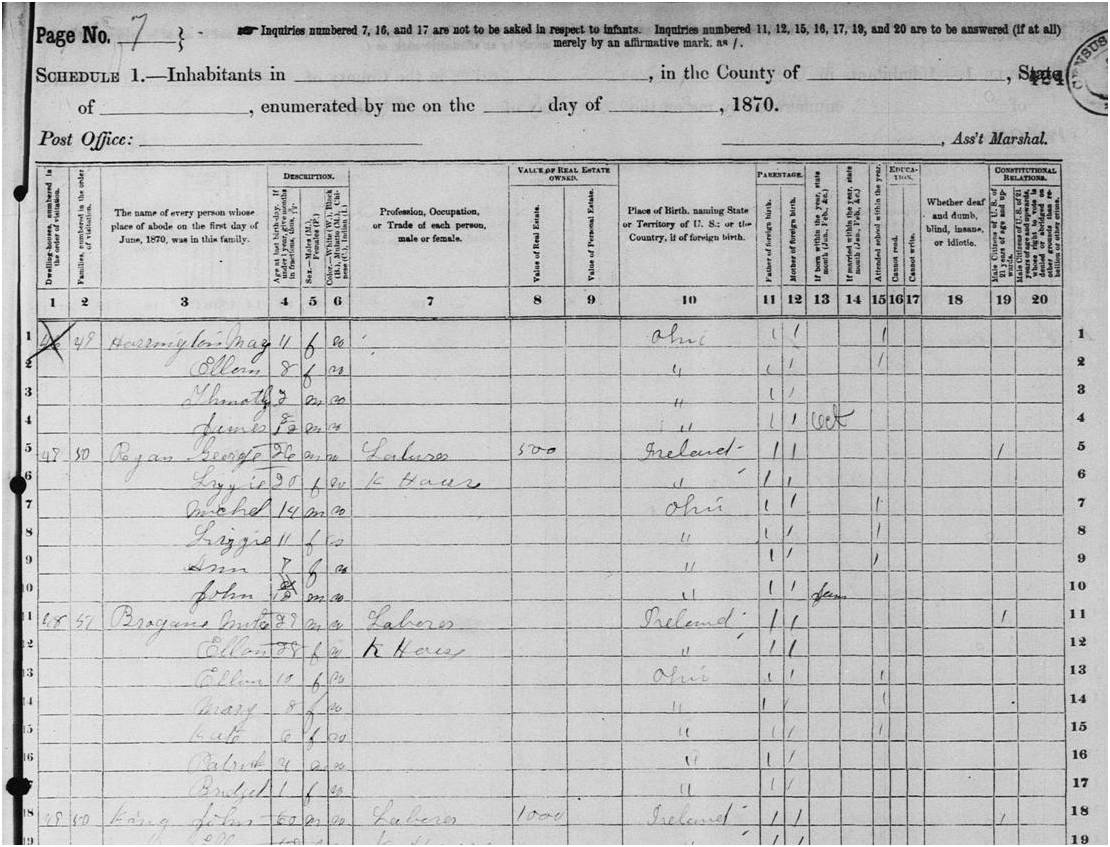 Page No. 7
Inquiries numbered 7, 16, and 17 are not to be asked in respect to infants. Inquiries numbered 11, 12, 15, 16, 17, 19, and 20 are to be answered (if at all)
merely by an affirmative mark, as /.
SCHEDULE 1.—Inhabitants in , in the County of , State
of , enumerated by me on the day of , 1870.
Post Office: , Ass't Marshal.
CENSUS
Dwelling-houses, numbered in the order of visitation.
Families, numbered in the order of visitation.
The name of every person whose place of abode on the first day of June, 1870, was in this family.
DESCRIPTION.
Age at last birth-day. If under 1 year, give months in fractions, thus,
Sex.—Males (M.), Females (F.)
Color.—White (W.), Black (B.), Mulatto (M.), Chinese (C.), Indian (I.)
Profession, Occupation, or Trade of each person, male or female.
VALUE OF REAL ESTATE OWNED.
Value of Real Estate.
Value of Personal Estate.
Place of Birth, naming State or Territory of U. S.; or the Country, if of foreign birth.
PARENTAGE.
Father of foreign birth.
Mother of foreign birth.
If born within the year, state month (Jan., Feb., &c.)
If married within the year, state month (Jan., Feb., &c.)
Attended school within the year.
EDUCATION.
Cannot read.
Cannot write.
Whether deaf and dumb, blind, insane, or idiotic.
CONSTITUTIONAL RELATIONS.
Male Citizens of U. S. of 21 years of age and upwards.
Male Citizens of U. S. of 21 years of age and upwards, whose right to vote is denied or abridged on other grounds than rebellion or other crime.
1 2 3 4 5 6 7 8 9 10 11 12 13 14 15 16 17 18 19 20
1 49 Harrington May 11 f w Ohio / / / 1
2 Ellen 8 f w " / / / 2
3 m w " / / 3
4 James m w " / / Oct 4
5 50 Regan George 26 m w Laborer 500 Ireland / / / 5
6 Lizzie 20 f w K House " / / 6
7 Michel 14 m w Ohio / / / 7
8 Lizzie 11 f w " / / / 8
9 Ann f w " / / / 9
10 John m w " / / Jan 10
11 48 51 Brogane m w Laborer Ireland / / / 11
12 Ellen 28 f w K House " / / 12
13 Ellen 10 f w Ohio / / / 13
14 Mary 8 f w " / / / 14
15 Kate 6 f w " / / / 15
16 Patrick 4 w " / / 16
17 Bridget 1 f w " / / 17
18 49 King John 60 m w Laborer 1000 Ireland / / / 18
19 19